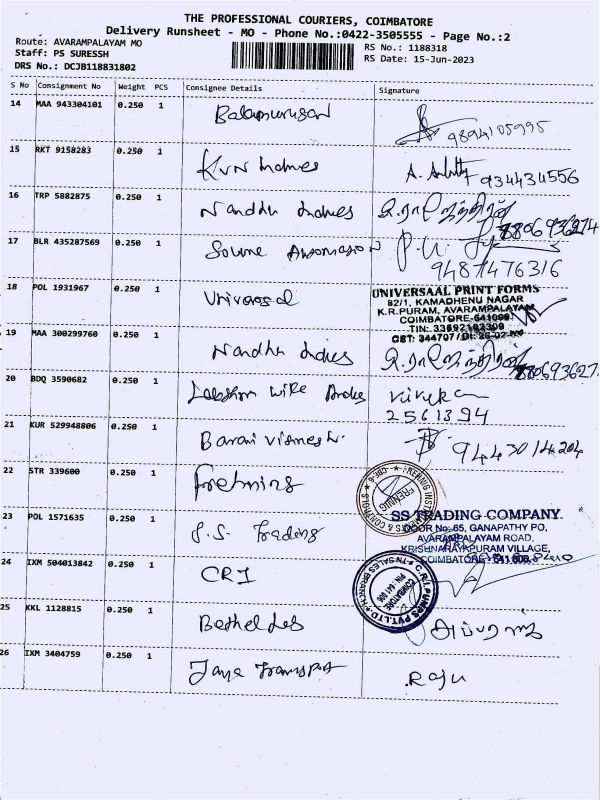 THE PROFESSIONAL COURIERS, COIMBATORE
Delivery Runsheet - MO - Phone No.:0422-3505555 - Page No.:2
Route: AVARAMPALAYAM MO
Staff: PS SURESSH
DRS No.: DCJB118831802
RS No.: 1188318
RS Date: 15-Jun-2023
S No Consignment No Weight PCS Consignee Details Signature
14 MAA 943304101 0.250 1 Balamurugan 9894105995
15 RKT 9158283 0.250 1 KVN Indnes 934434556
16 TRP 5882875 0.250 1 Nandhu Indnes
17 BLR 435287569 0.250 1 Soume Automason
9487476316
18 POL 1931967 0.250 1 Universal
UNIVERSAAL PRINT FORMS
82/1, KAMADHENU NAGAR
K.R.PURAM, AVARAMPALAYAM
COIMBATORE-641006
TIN: 33692162309
CST: 344707 / Dt: 26-02
19 MAA 300299760 0.250 1 Nandhu Indnes
20 BDQ 3590682 0.250 1 Lakshmi Wire
2561394
21 KUR 529948806 0.250 1 Barani
22 STR 339600 0.250 1
FRENIG INSTRUMENTS & CONTROLS
23 POL 1571635 0.250 1 S.S. Trading
SS TRADING COMPANY
DOOR No:65, GANAPATHY PO,
AVARAMPALAYAM ROAD,
KRISHNARAYAPURAM VILLAGE,
COIMBATORE - 641 006.
24 IXM 504013842 0.250 1 CRI
C.R.I. PUMPS PVT. LTD
COIMBATORE
PIN - 641 006
25 KKL 1128815 0.250 1
26 IXM 3404759 0.250 1 Jaya Transport Raju